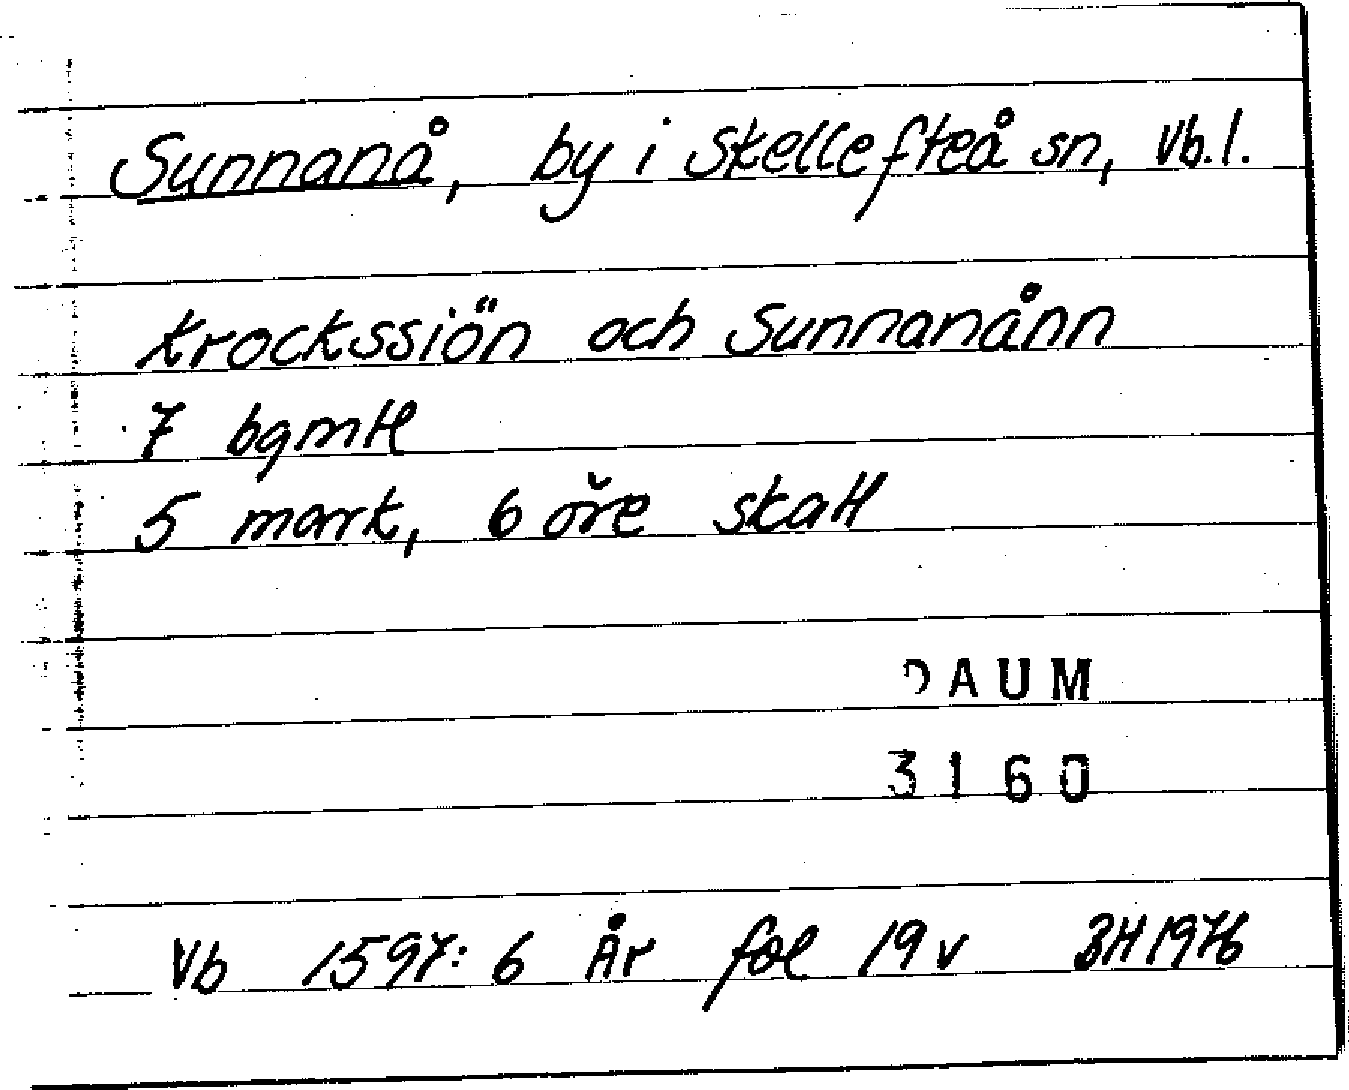 Sunnanå, by i Skellefteå sn, Vb.l.
Krockssiön och Sunnanånn
7 bgmtl
5 mark, 6 öre skatt
DAUM
3160
Vb 1597:6 År fol 19v BH 1976